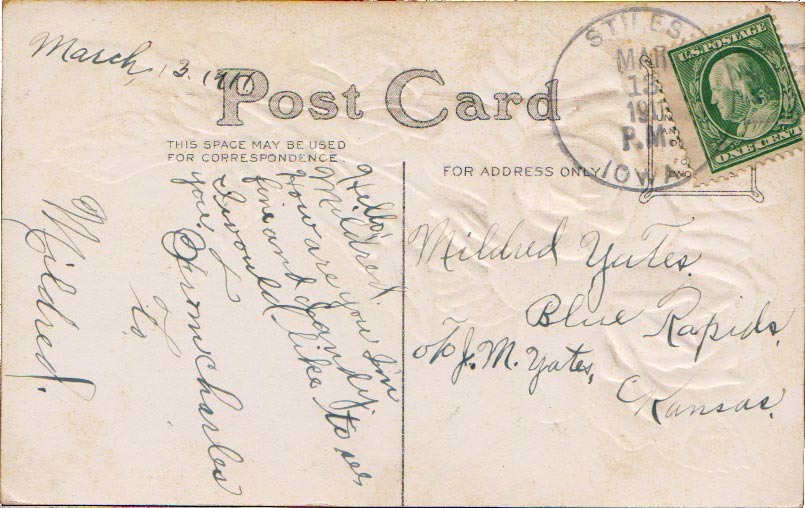 March, 13. 1911
Post Card
THIS SPACE MAY BE USED
FOR CORRESPONDENCE
FOR ADDRESS ONLY
STILES,
MAR
13
P.M.
IOWA
U.S. POSTAGE
ONE CENT
Hello,
Mildred.
How are you I'm
fine and dandy.
I would like to see
you.
From Charles
To
Mildred.
Mildred Yates.
Blue Rapids.
c/o J. M. Yates,
Kansas.